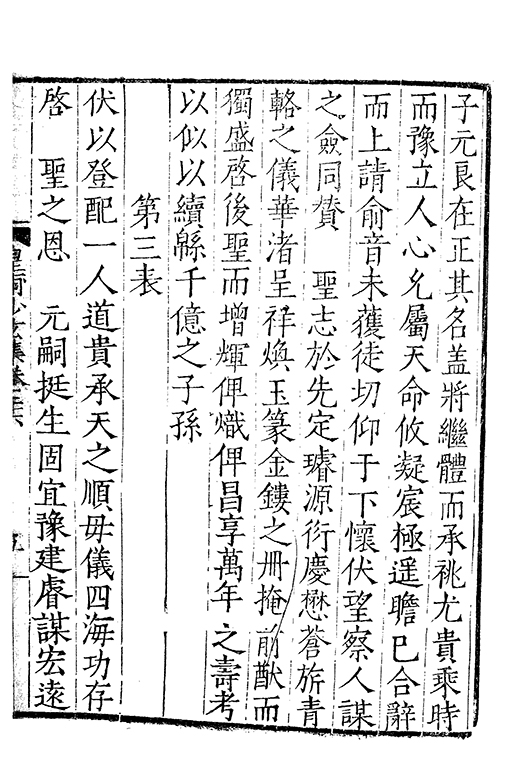 子元良在正其名盖將繼體而承祧尤貴乘時
而豫立人心允屬天命攸凝宸極遥瞻已合辭
而上請俞音未獲徒切仰于下懷伏望察人謀
之僉同賛　聖志於先定璿源衍慶懋蒼旂青
輅之儀華渚呈祥煥玉篆金鏤之冊掩前猷而
獨盛啓後聖而增輝俾熾俾昌享萬年之壽考
以似以續緜千億之子孫
第三表
伏以登配一人道貴承天之順毋儀四海功存
啓　聖之恩　元嗣挺生固宜豫建睿謀宏遠